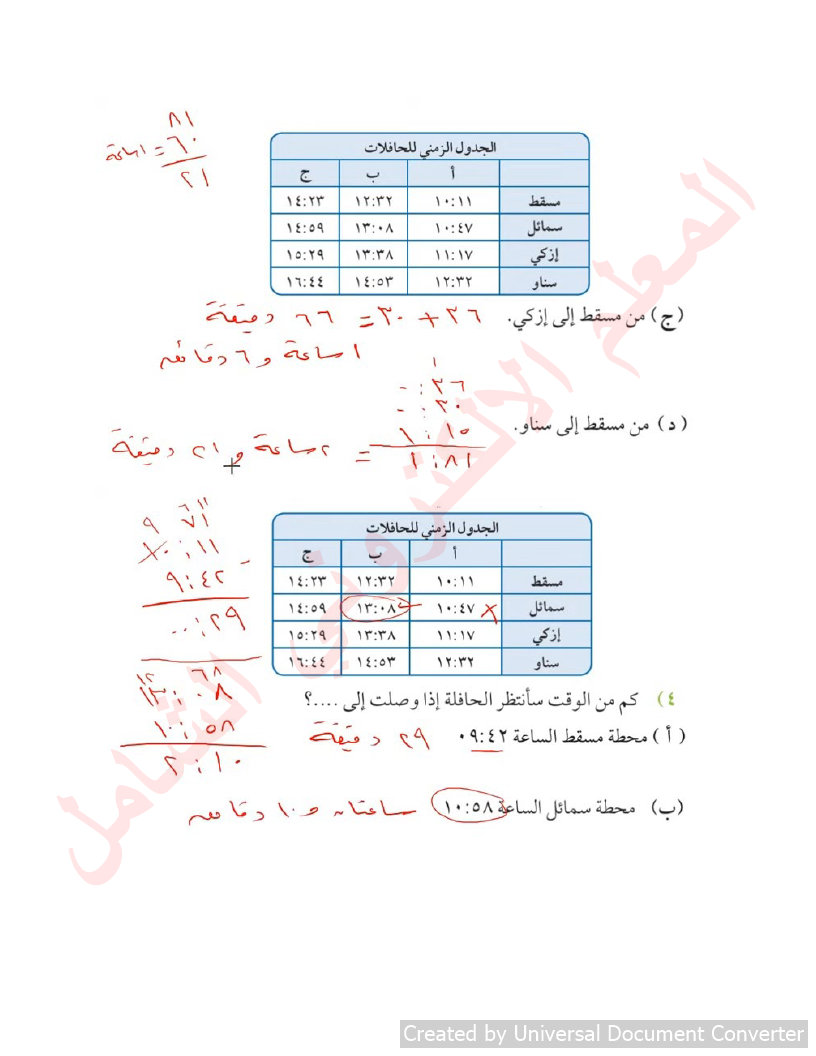 ٨١
٦٠ = ١ساعة
٢١
الجدول الزمني للحافلات
أ ب ج
مسقط ١٠:١١ ١٢:٣٢ ١٤:٢٣
سمائل ١٠:٤٧ ١٣:٠٨ ١٤:٥٩
إزكي ١١:١٧ ١٣:٣٨ ١٥:٢٩
سناو ١٢:٣٢ ١٤:٥٣ ١٦:٤٤
(ج) من مسقط إلى إزكي. ٣٦ + ٣٠ = ٦٦ دقيقة
١ساعة و ٦ دقائق
١
٠٠:٣٦
٠٠:٣٠
١:١٥
١:٨١
(د) من مسقط إلى سناو.
= ٢ساعة و ٢١ دقيقة
الجدول الزمني للحافلات
أ ب ج
مسقط ١٠:١١ ١٢:٣٢ ١٤:٢٣
سمائل ١٠:٤٧ ١٣:٠٨ ١٤:٥٩
إزكي ١١:١٧ ١٣:٣٨ ١٥:٢٩
سناو ١٢:٣٢ ١٤:٥٣ ١٦:٤٤
٦ ١١
٩ ٧١
١٠:١١
٩:٤٢ -
٠٠:٢٩
١٢ ٦٨
١٣:٠٨
١٠:٥٨
٢:١٠
٤) كم من الوقت سأنتظر الحافلة إذا وصلت إلى ....؟
(أ) محطة مسقط الساعة ٠٩:٤٢ ٢٩ دقيقة
(ب) محطة سمائل الساعة ١٠:٥٨ ساعتان و ١٠ دقائق
المعلم الالكتروني الشامل
Created by Universal Document Converter